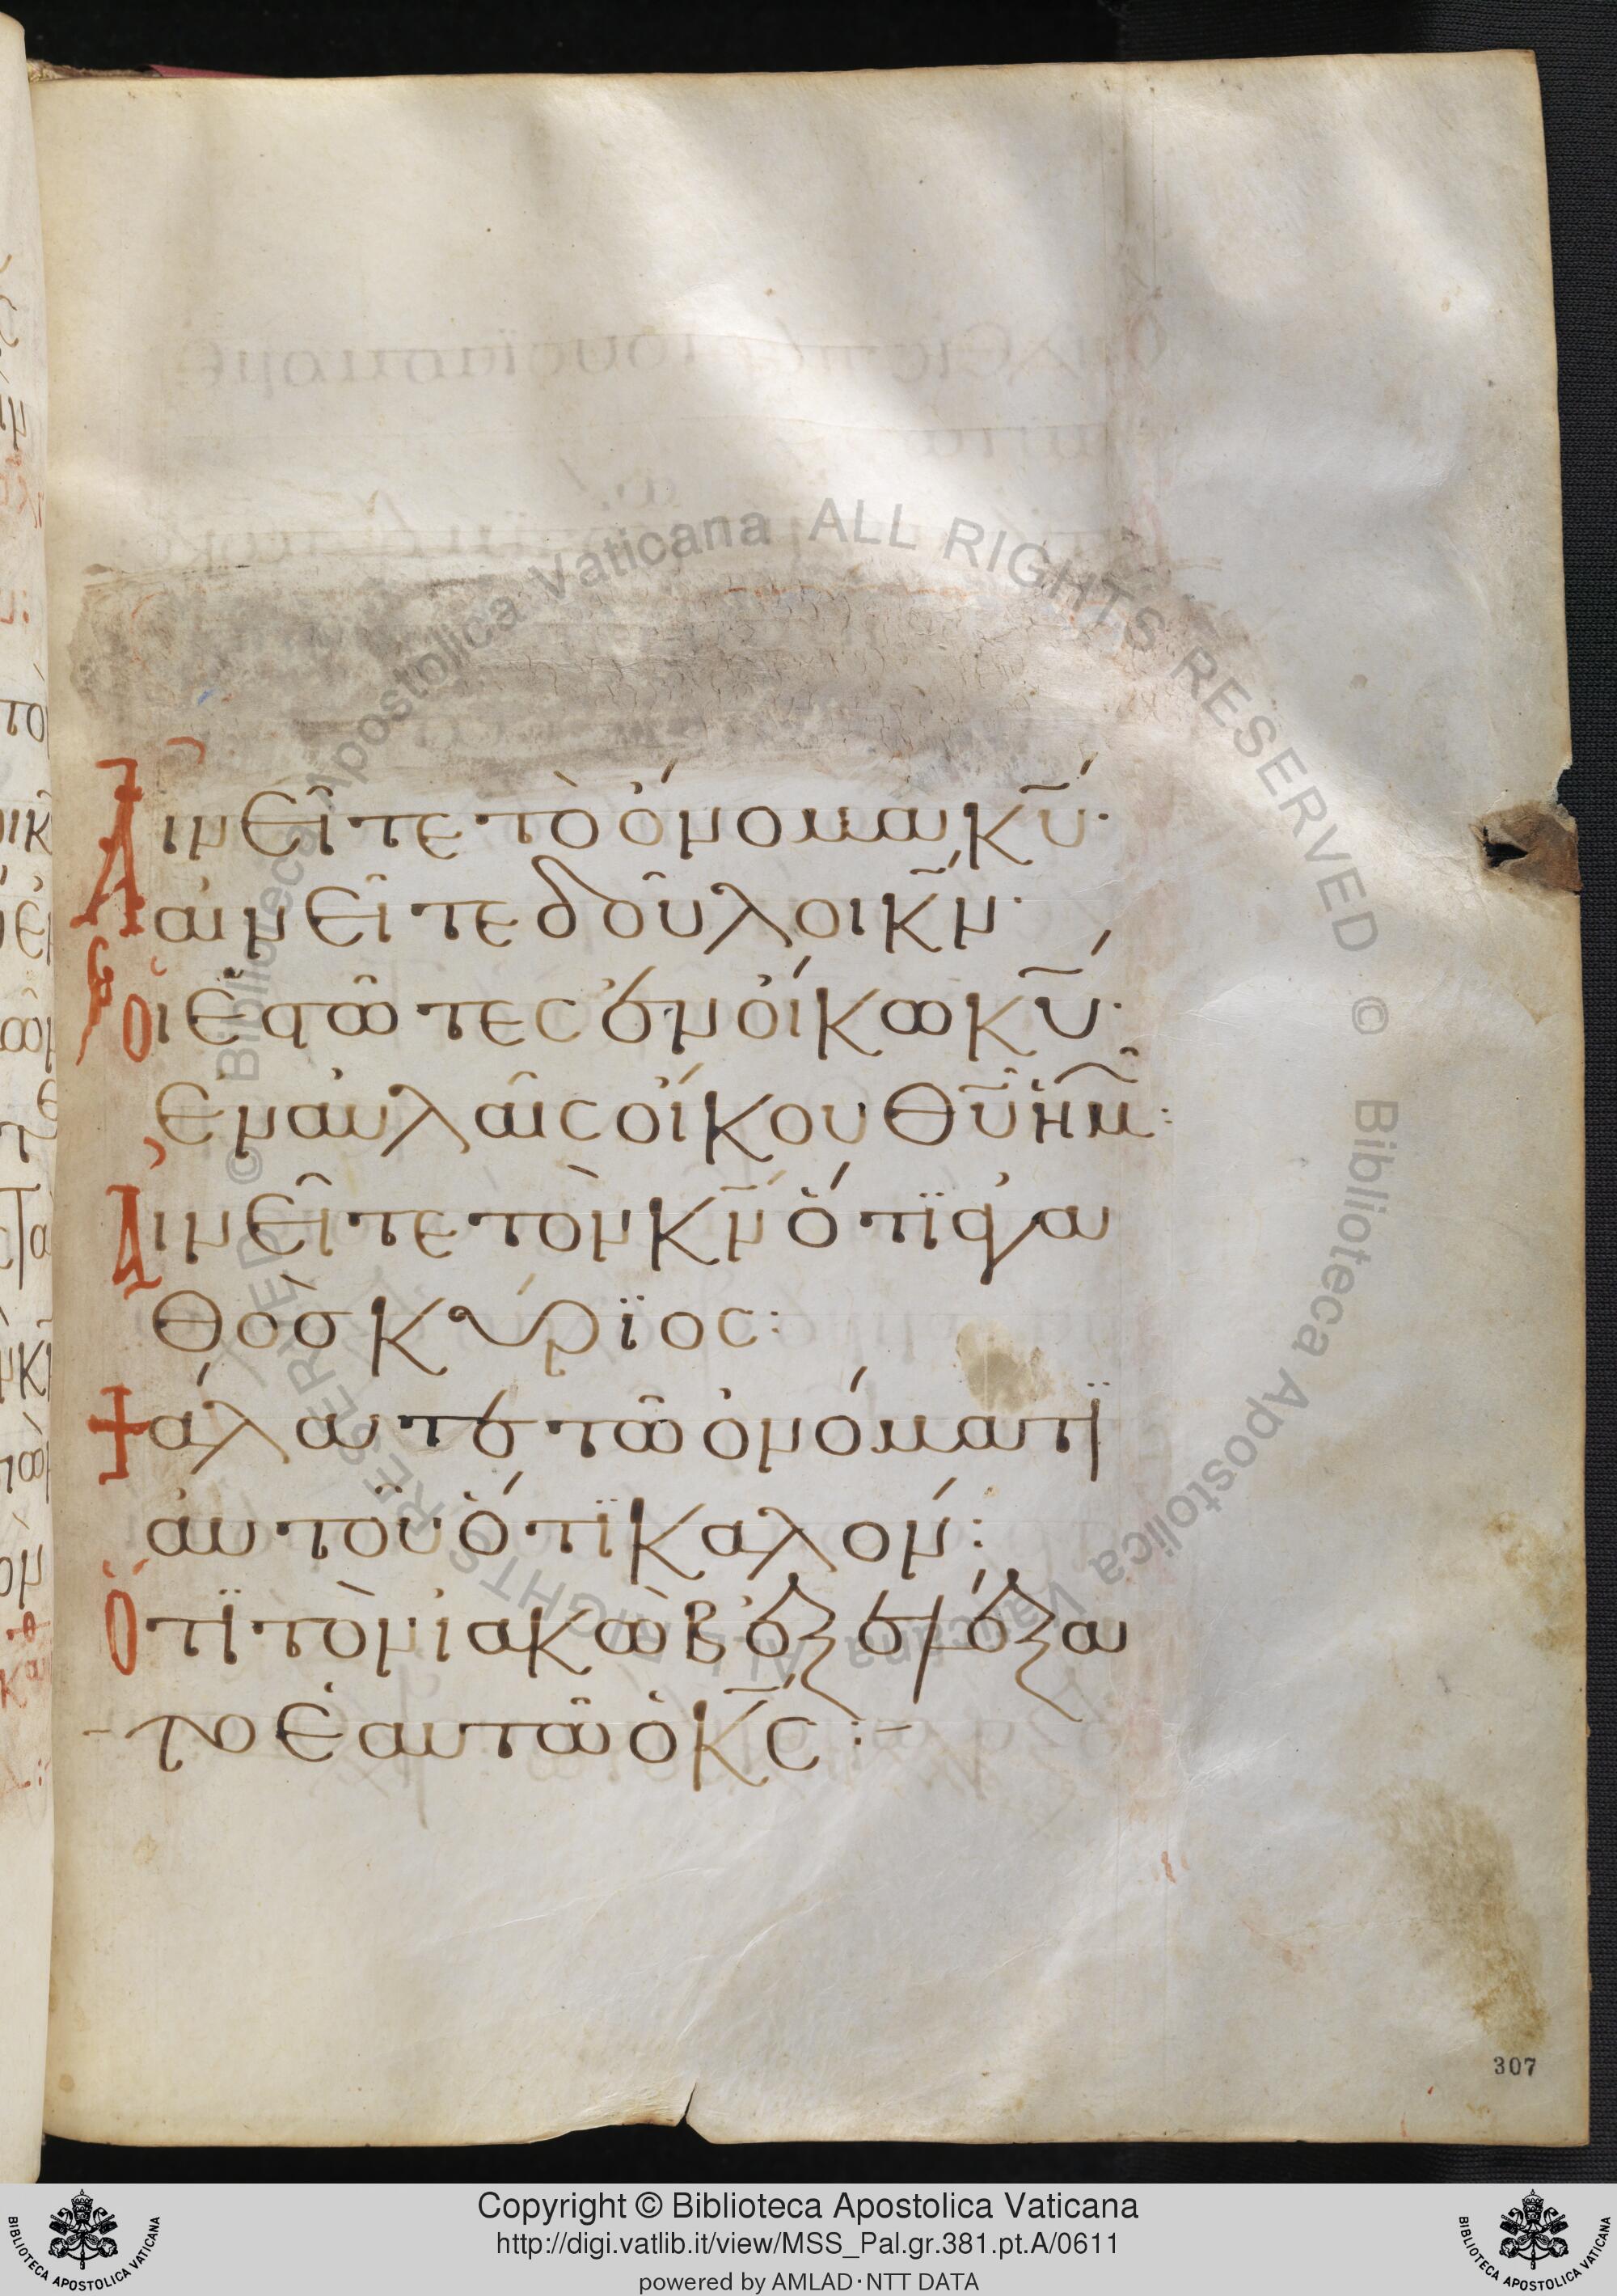 Αἰνεῖτε τὸ ὄνομα κ̅υ̅·
αἰνεῖτε δοῦλοι κ̅ν̅·
Οἱ ἑστῶτες ἐν οἴκω κ̅υ̅·
ἐν αὐλαῖς οἴκου θ̅υ̅ ἡμ̅:
Αἰνεῖτε τὸν κ̅ν̅ ὅτϊ ἀγα
θὸσ κύρϊος:
ψάλατε τῶ ὀνόματϊ
αὐτοῦ ὅτϊ καλόν:
Ὅτϊ τὸν ϊακὼβ ἐξελέξα
το ἑαυτῶ ὁ κ̅ς̅:-
307
© Biblioteca Apostolica Vaticana ALL RIGHTS RESERVED
© Biblioteca Apostolica Vaticana ALL RIGHTS RESERVED
Copyright © Biblioteca Apostolica Vaticana
http://digi.vatlib.it/view/MSS_Pal.gr.381.pt.A/0611
powered by AMLAD·NTT DATA
BIBLIOTECA APOSTOLICA VATICANA
BIBLIOTECA APOSTOLICA VATICANA